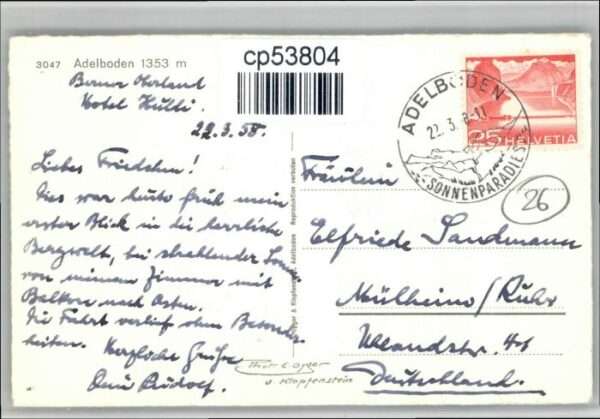 cp53804
3047 Adelboden 1353 m
Berner Oberland
Hotel Huldi.
22.3.58.
Liebes Friedchen!
Dies war heute früh mein
erster Blick in die herrliche
Bergwelt, bei strahlender Sonne
von meinem Zimmer mit
Balkon nach Osten.
Die Fahrt verlief ohne Besonder-
heiten. Herzliche Grüße
Dein Rudolf.
ADELBODEN
22.3.
-11
"SONNENPARADIES"
25 HELVETIA
26
Fräulein
Elfriede Sandmann
Mülheim/Ruhr
Uhlandstr.
Deutschland.
& Klopfenstein, Adelboden Reproduktion verboten
v. Klopfenstein